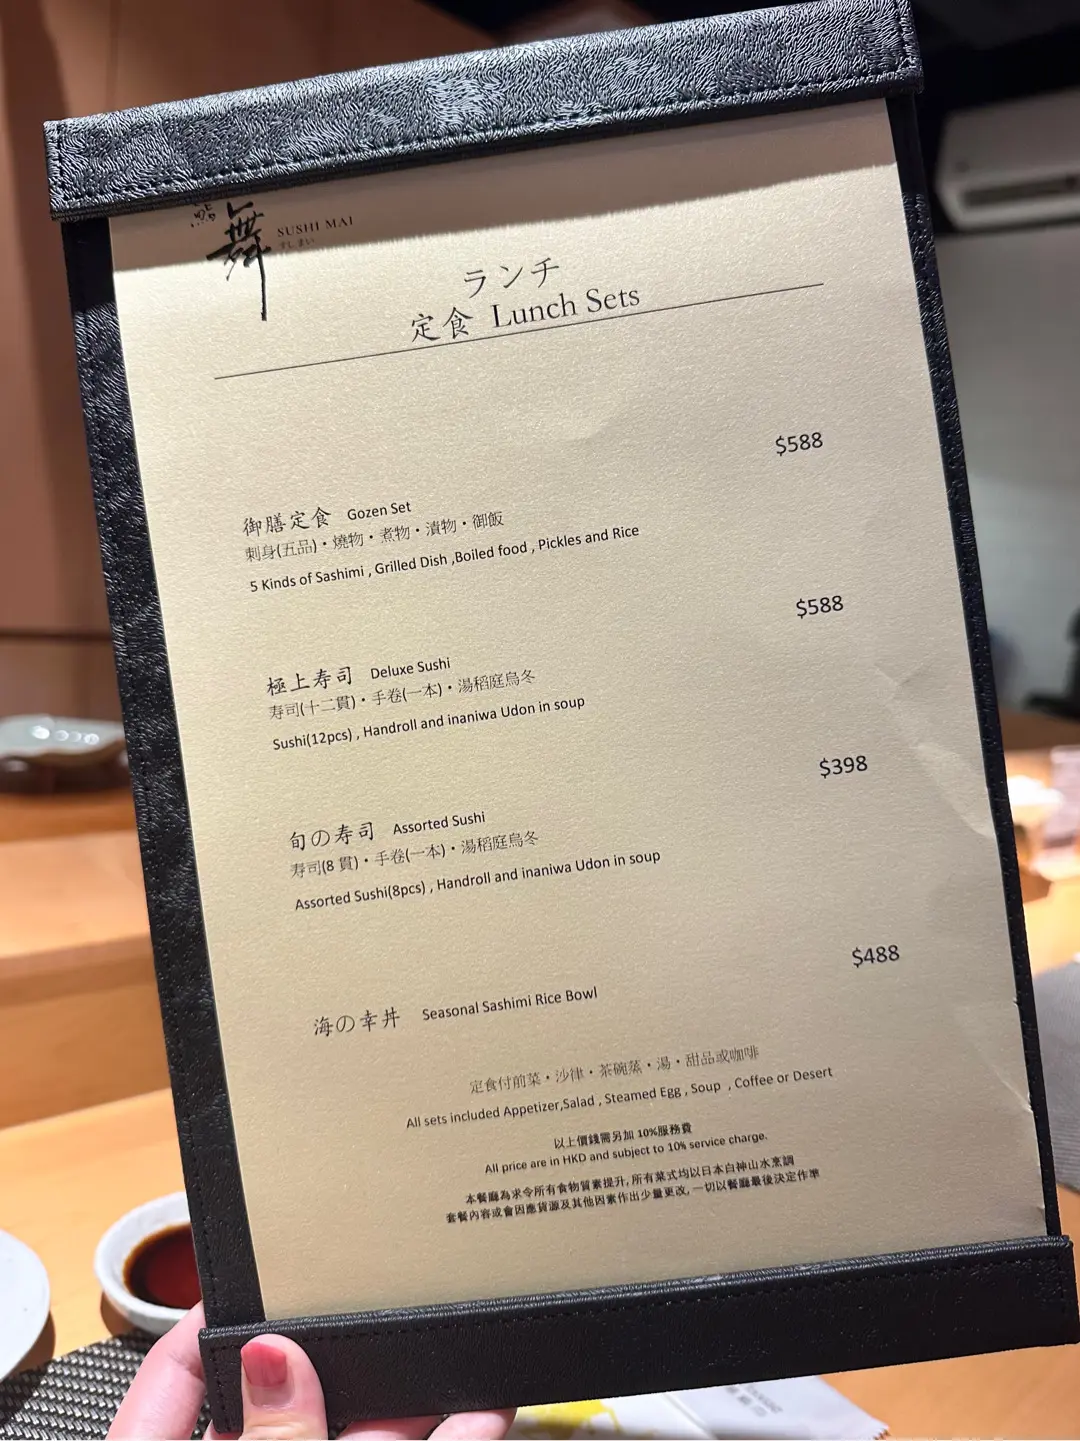 鮨 舞 SUSHI MAI
すしまい
ランチ
定食 Lunch Sets
$588
御膳定食 Gozen Set
刺身(五品)・燒物・煮物・漬物・御飯
5 Kinds of Sashimi , Grilled Dish ,Boiled food , Pickles and Rice
$588
極上寿司 Deluxe Sushi
寿司(十二貫)・手卷(一本)・湯稻庭烏冬
Sushi(12pcs) , Handroll and inaniwa Udon in soup
$398
旬の寿司 Assorted Sushi
寿司(8 貫)・手卷(一本)・湯稻庭烏冬
Assorted Sushi(8pcs) , Handroll and inaniwa Udon in soup
$488
海の幸丼 Seasonal Sashimi Rice Bowl
定食付前菜・沙律・茶碗蒸・湯・甜品或咖啡
All sets included Appetizer,Salad , Steamed Egg , Soup , Coffee or Desert
以上價錢需另加 10%服務費
All price are in HKD and subject to 10% service charge.
本餐廳為求令所有食物質素提升, 所有菜式均以日本白神山水烹調
套餐內容或會因應貨源及其他因素作出少量更改, 一切以餐廳最後決定作準